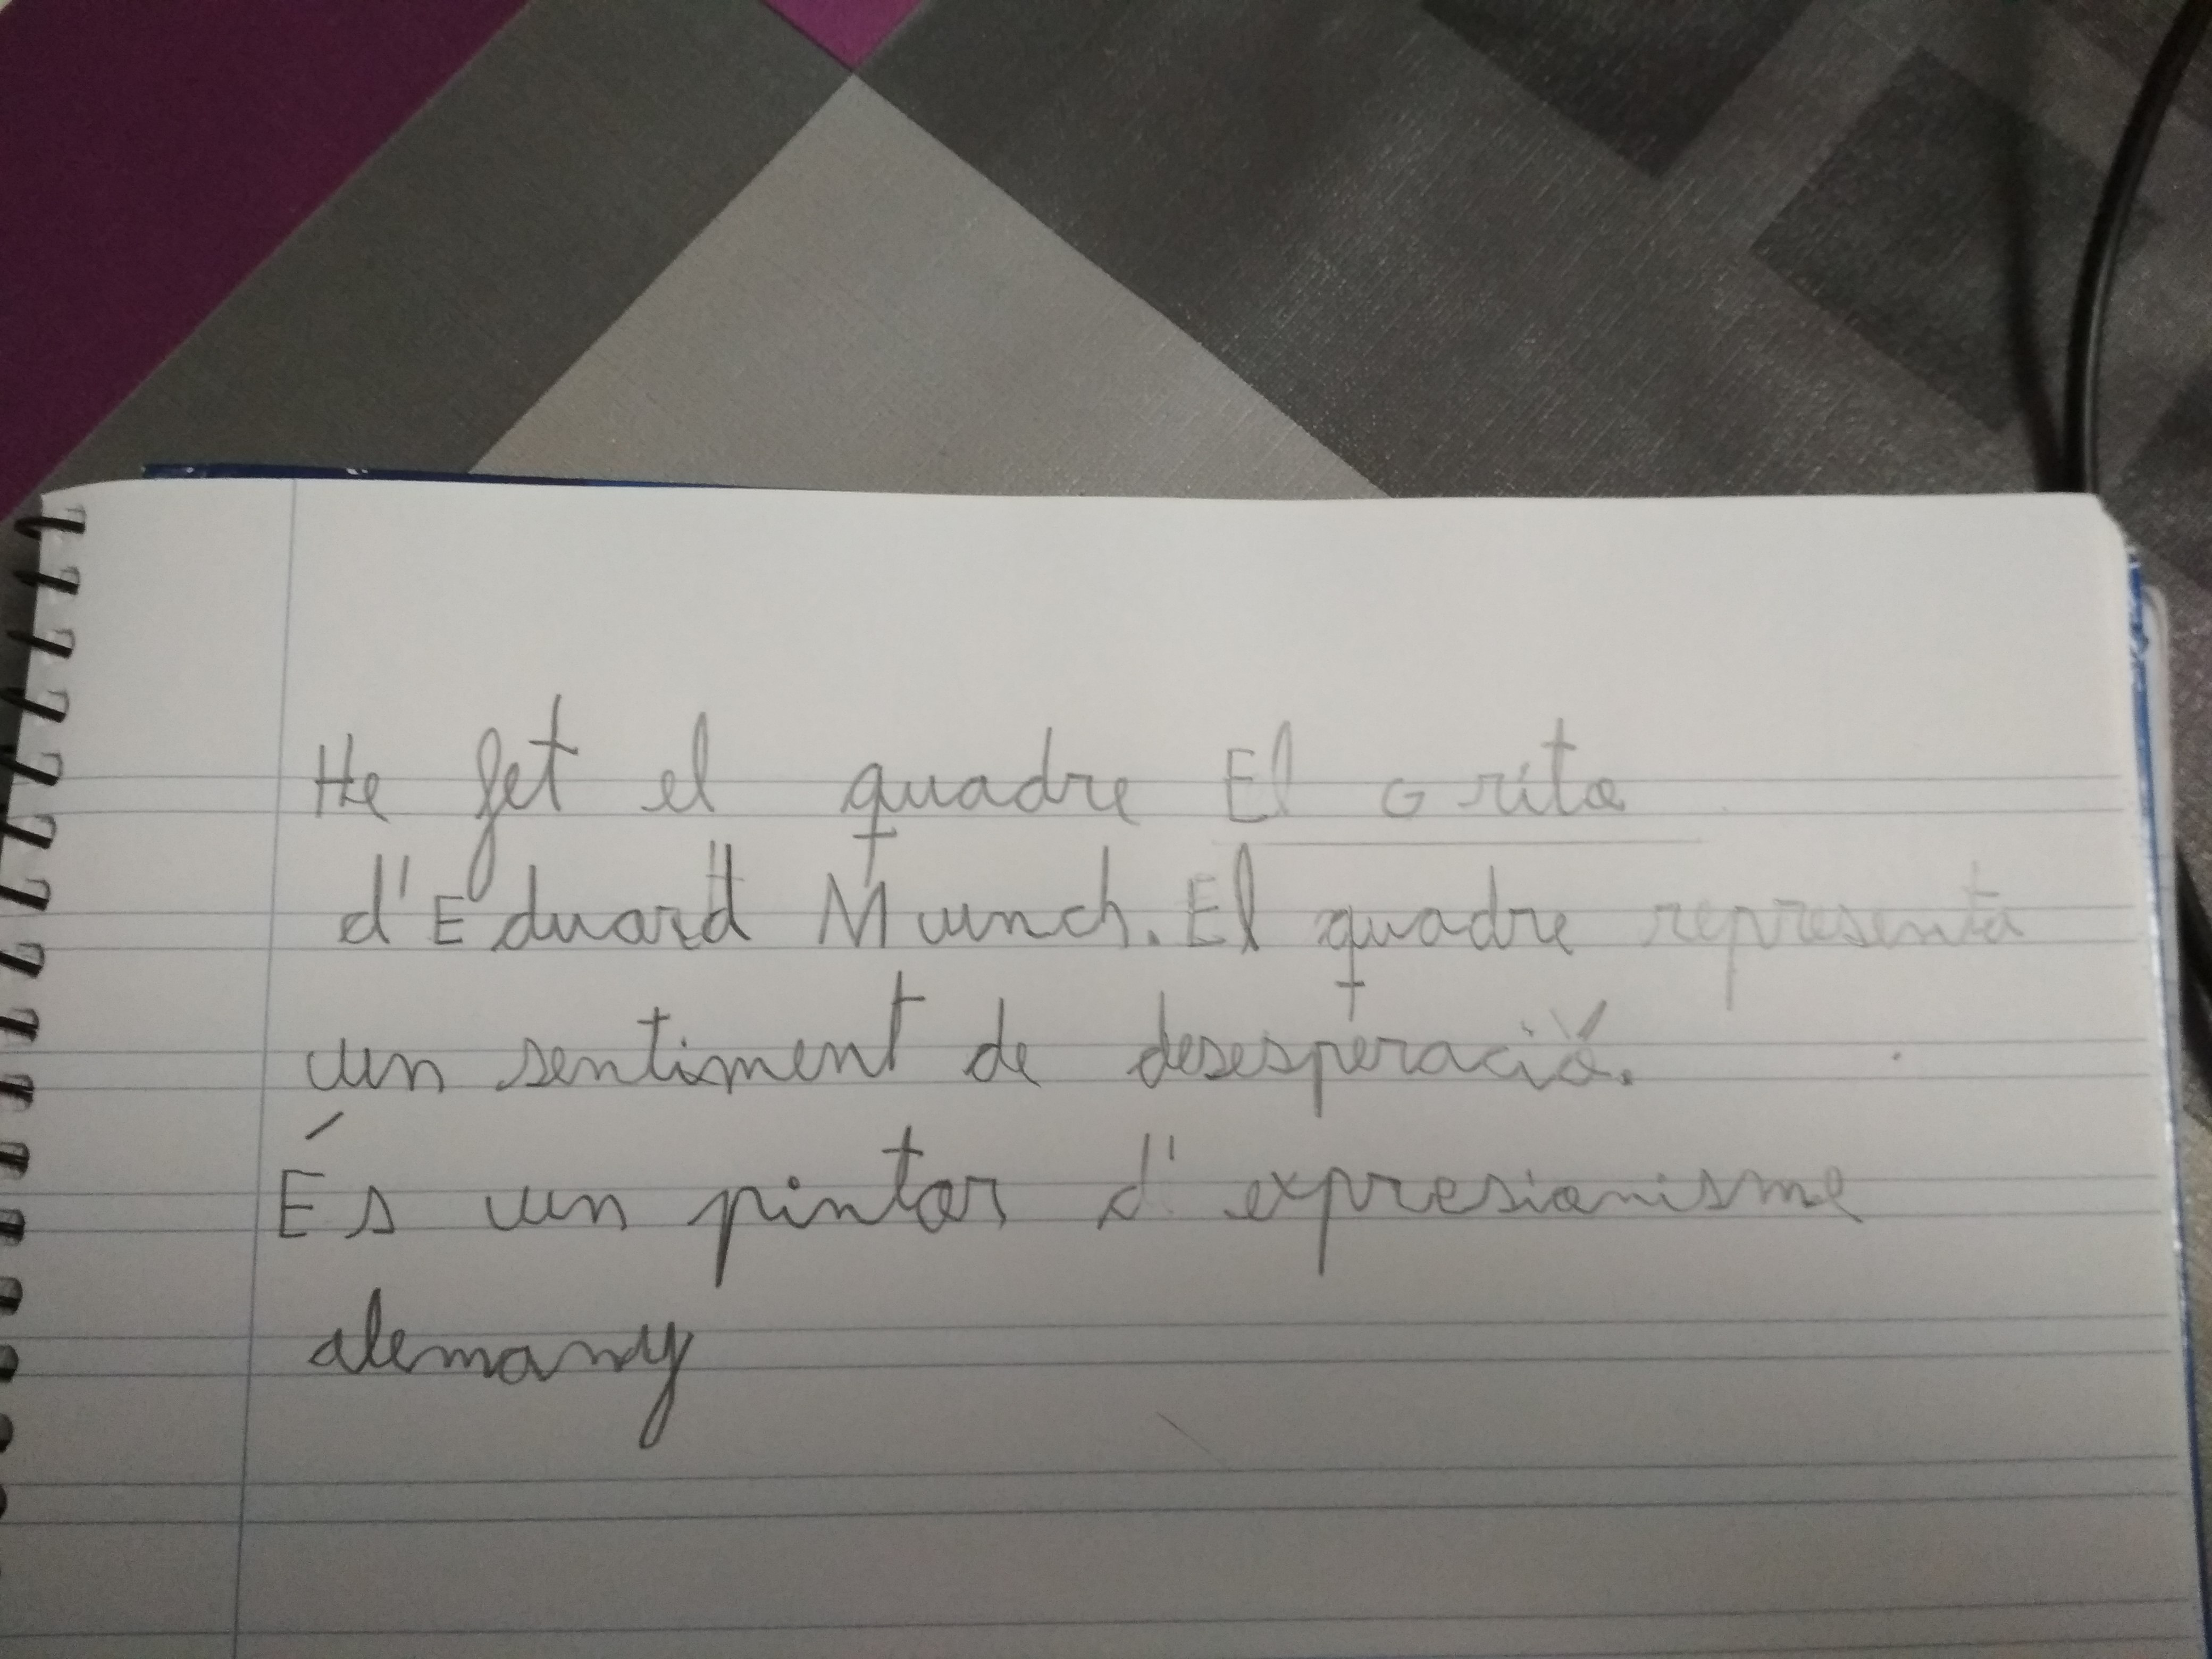 He fet el quadre El Grito
d'Eduard Munch. El quadre representa
un sentiment de desesperació.
És un pintor d'expresionisme
alemany